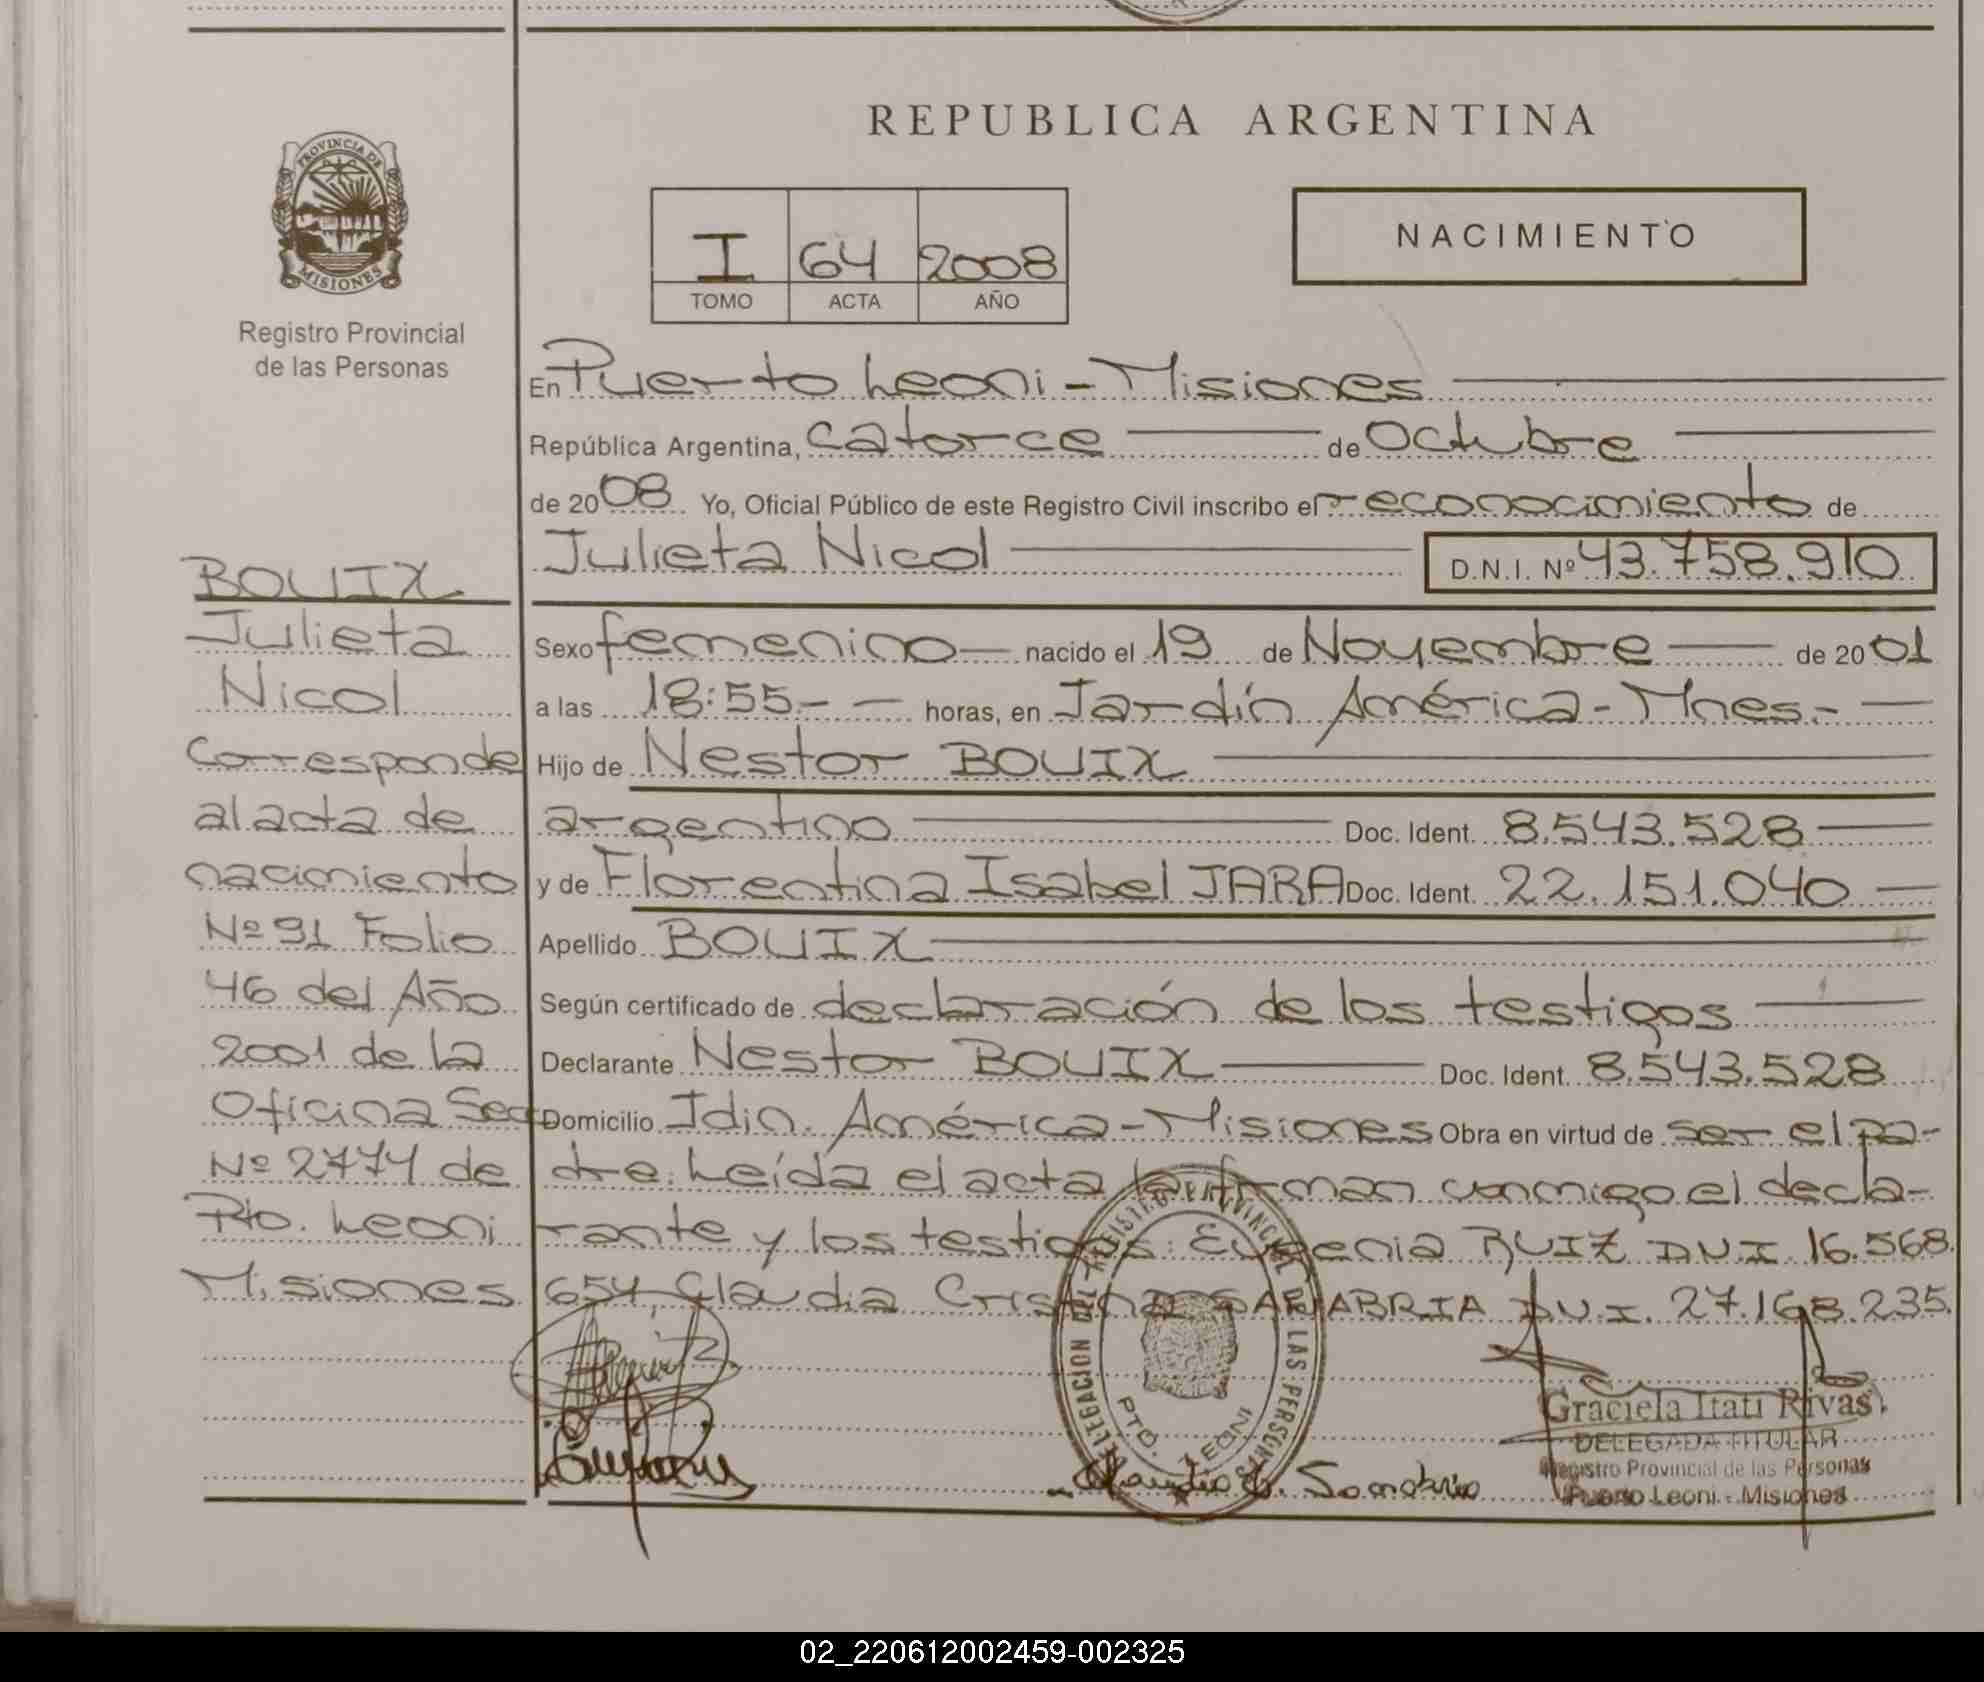 REPUBLICA ARGENTINA
PROVINCIA DE
MISIONES
Registro Provincial
de las Personas
I 64 2008
TOMO ACTA AÑO
NACIMIENTO
En Puerto Leoni - Misiones
República Argentina, catorce de Octubre
de 2008 Yo, Oficial Público de este Registro Civil inscribo el reconocimiento de
Julieta Nicol D.N.I. Nº 43.758.910
Sexo femenino nacido el 19 de Noviembre de 2001
a las 18:55.- horas, en Jardín América - Mnes.-
Hijo de Nestor BOUIX
argentino Doc. Ident. 8.543.528
y de Florentina Isabel JARA Doc. Ident. 22.151.040
Apellido BOUIX
Según certificado de declaración de los testigos
Declarante Nestor BOUIX Doc. Ident. 8.543.528
Domicilio Jdín. América - Misiones Obra en virtud de ser el pa-
dre. Leída el acta la firman conmigo el decla-
rante y los testigos: Eugenia RUIZ D.N.I 16.568.
654, Claudia Cristina SANABRIA D.N.I. 27.168.235.
BOUIX
Julieta
Nicol
Corresponde
al acta de
nacimiento
Nº 91 Folio
46 del Año
2001 de la
Oficina Secc
Nº 2774 de
Pto. Leoni
Misiones
DELEGACION DEL REGISTRO PROVINCIAL DE LAS PERSONAS
PTO. LEONI
Claudia C. Sanabria
Graciela Itatí Rivas
DELEGADA TITULAR
Registro Provincial de las Personas
Puerto Leoni - Misiones
02_220612002459-002325